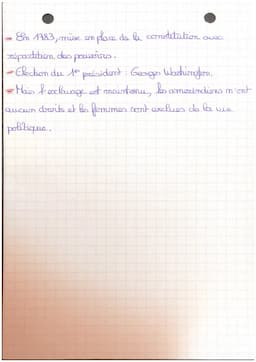 - En 1783, mise en place de la constitution avec
répartition des pouvoirs.
- Election du 1er président : George Washington.
- Mais l'esclavage est maintenu, les amérindiens n'ont
aucun droits et les femmes sont exclues de la vie
politique.